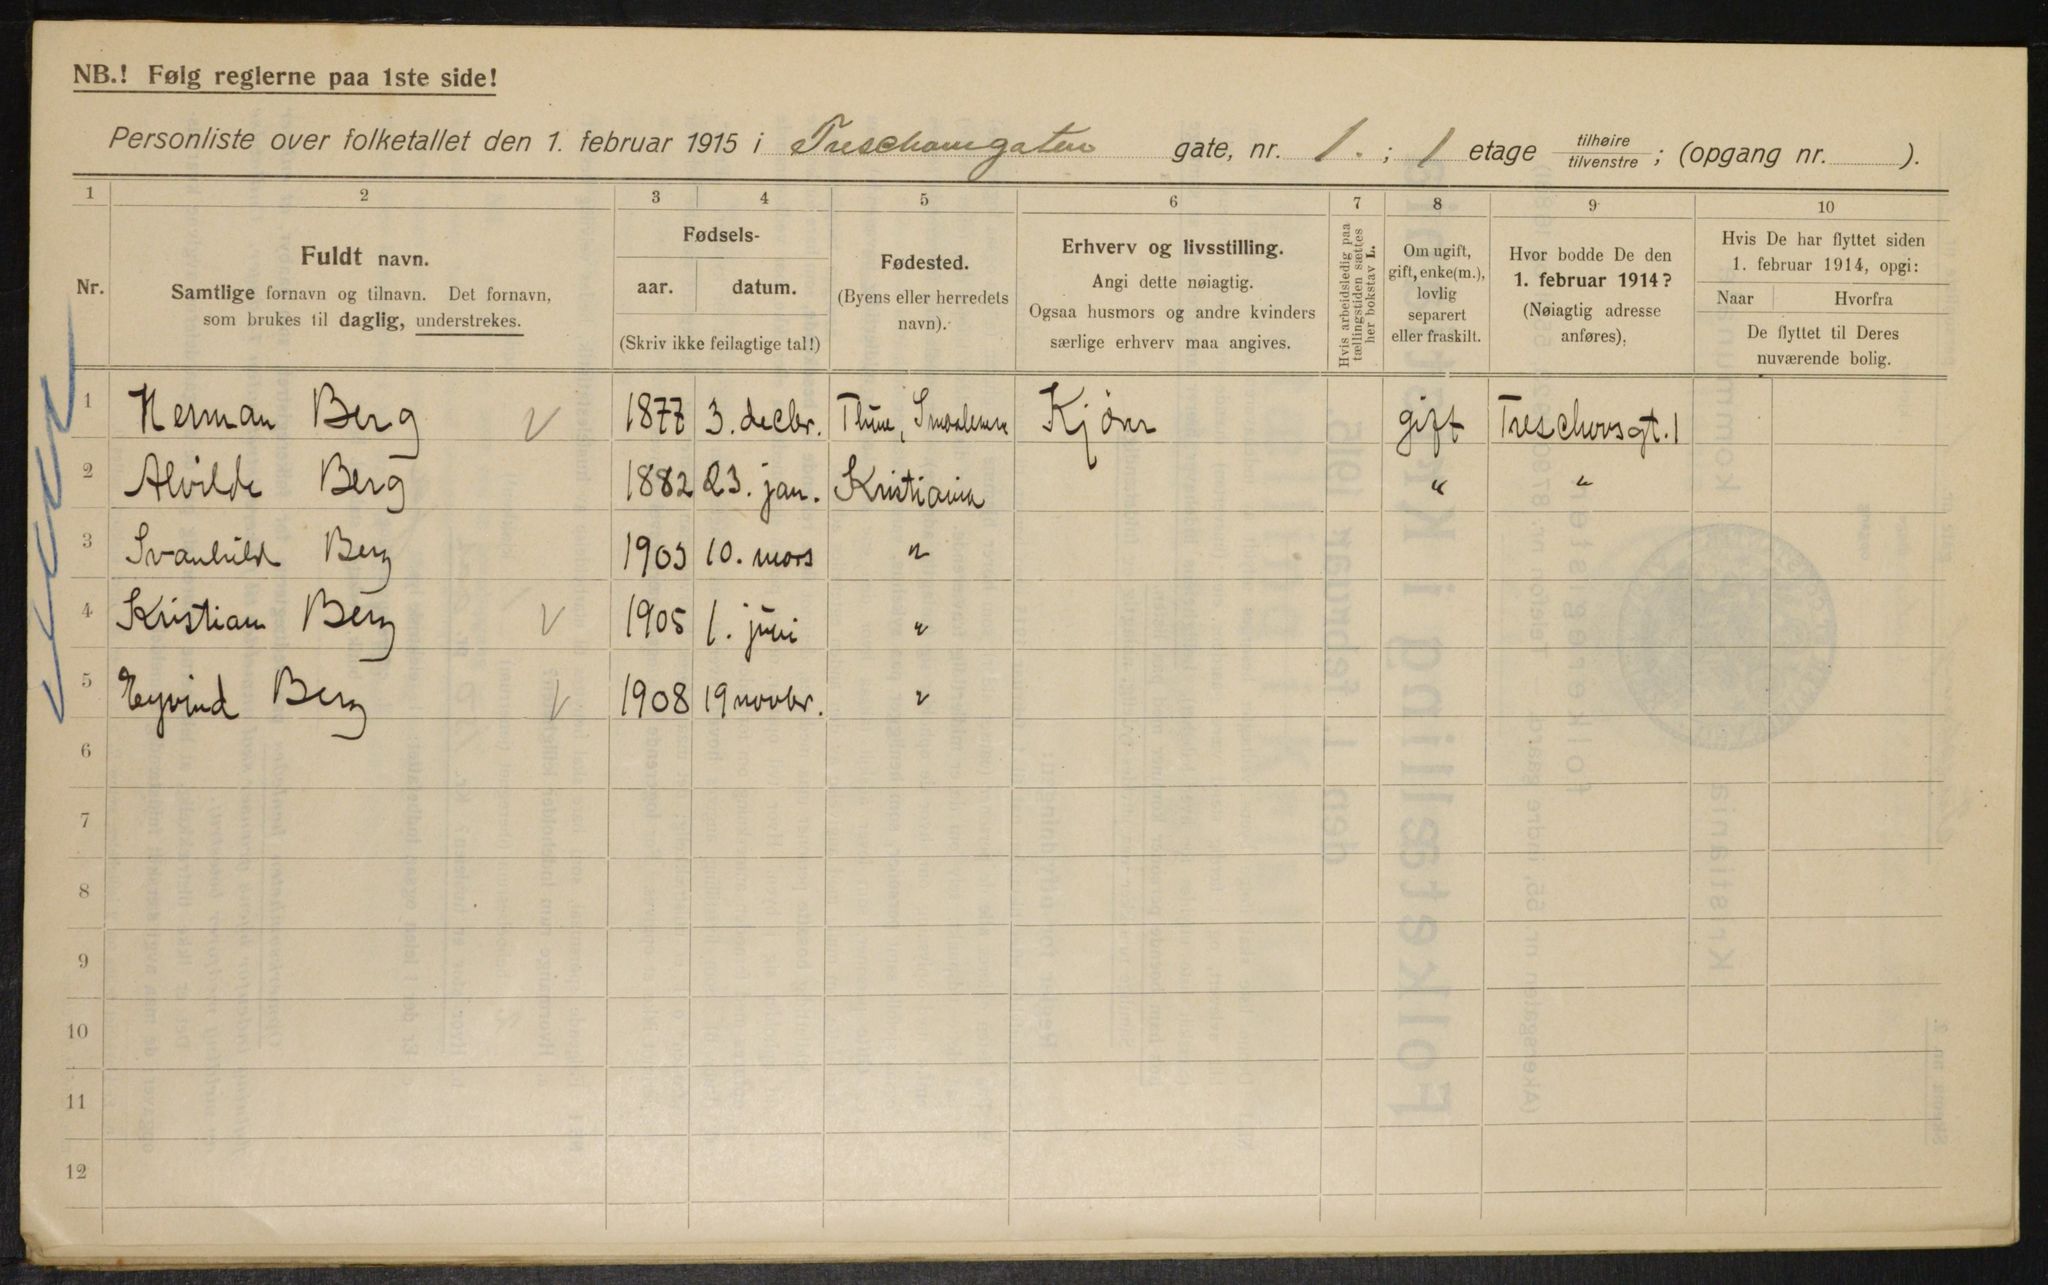 NB.! Følg reglerne paa 1ste side!
Personliste over folketallet den 1. februar 1915 i Treschowsgaten gate, nr. 1. ; 1 etage tilhøire tilvenstre ; (opgang nr. ).
1 2 3 4 5 6 7 8 9 10
Nr.
Fuldt navn.
Samtlige fornavn og tilnavn. Det fornavn,
som brukes til daglig, understrekes.
Fødsels-
aar. datum.
(Skriv ikke feilagtige tal!)
Fødested.
(Byens eller herredets
navn).
Erhverv og livsstilling.
Angi dette nøiagtig.
Ogsaa husmors og andre kvinders
særlige erhverv maa angives.
Hvis arbeidsledig paa
tællingstiden sættes
her bokstav L.
Om ugift,
gift, enke(m.),
lovlig
separert
eller fraskilt.
Hvor bodde De den
1. februar 1914?
(Nøiagtig adresse
anføres).
Hvis De har flyttet siden
1. februar 1914, opgi:
Naar Hvorfra
De flyttet til Deres
nuværende bolig.
1 Herman Berg 1877 3. decbr. gift Treschowsgt. 1
2 Alvilde Berg 1882 23. jan. Kristiania " "
3 Svanhild Berg 1903 10. mars "
4 Kristian Berg 1905 1. juni "
5 Eyvind Berg 1908 19 novbr. "
6
7
8
9
10
11
12